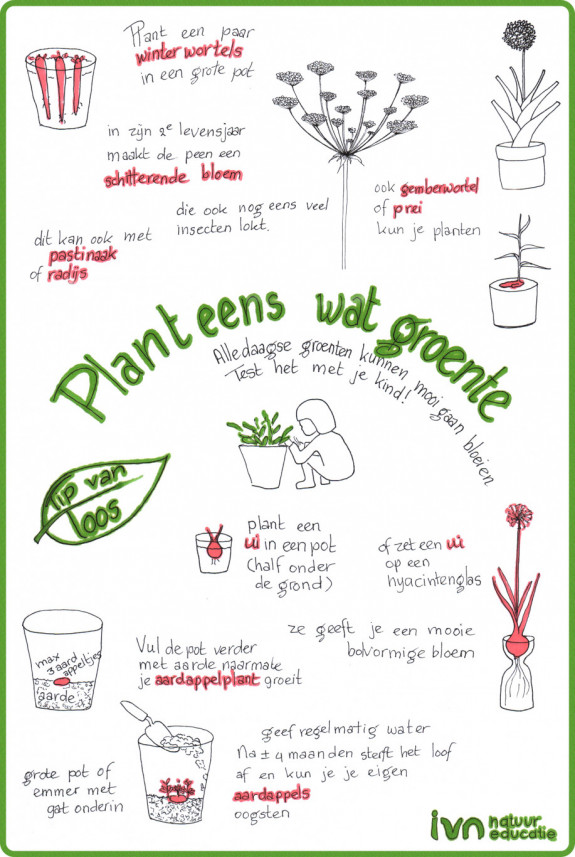 Plant een paar
winterwortels
in een grote pot
in zijn 2e levensjaar
maakt de peen een
schitterende bloem
die ook nog eens veel
insecten lokt.
dit kan ook met
pastinaak
of radijs
ook gemberwortel
of prei
kun je planten
Plant eens wat groente
Alledaagse groenten kunnen mooi gaan bloeien
Test het met je kind!
Tip van
Loos
plant een
ui in een pot
(half onder
de grond)
of zet een ui
op een
hyacintenglas
ze geeft je een mooie
bolvormige bloem
max
3 aard
appeltjes
aarde
Vul de pot verder
met aarde naarmate
je aardappelplant groeit
grote pot of
emmer met
gat onderin
geef regelmatig water
Na ± 4 maanden sterft het loof
af en kun je je eigen
aardappels
oogsten
ivn natuur
educatie